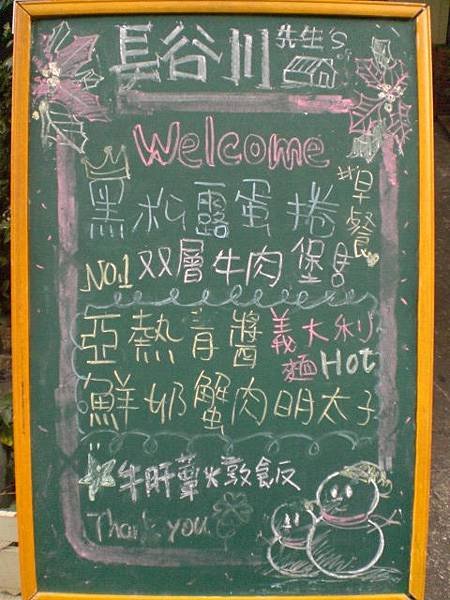 長谷川 先生's
Welcome
早餐
黑松露蛋捲
NO.1 双層牛肉堡
亞熱青醬義大利
麵 Hot
鮮奶蟹肉明太子
牛肝蕈火燉飯
Thank you